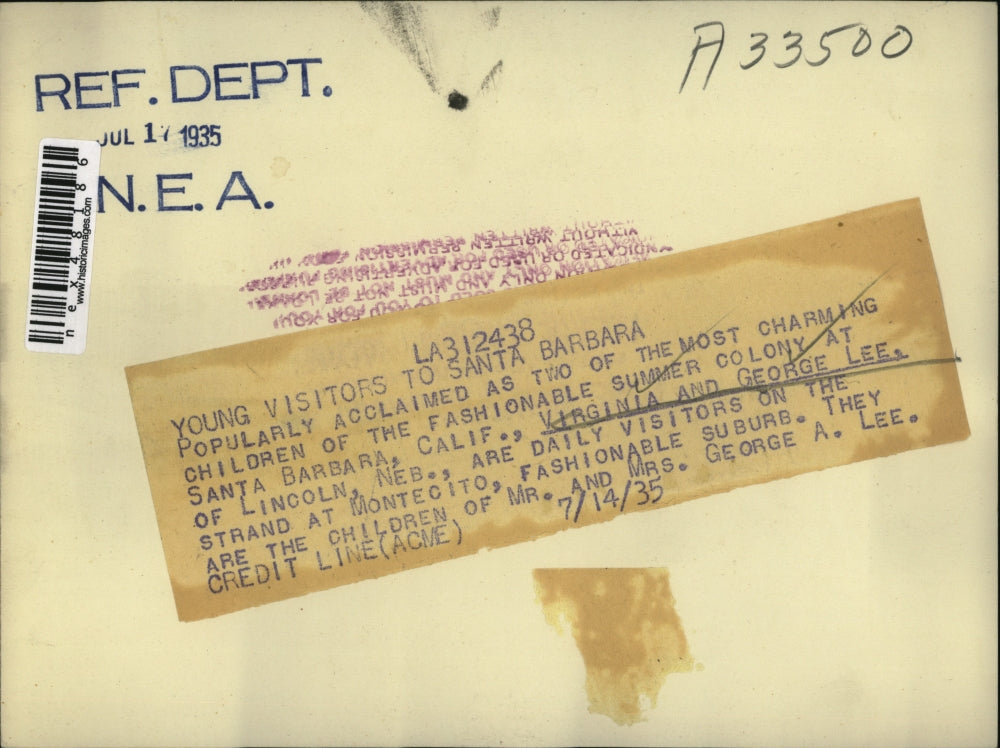 A33500
REF. DEPT.
JUL 17 1935
N.E.A.
nex48186
www.historicimages.com
WITHOUT WRITTEN PERMISSION
LA312438
YOUNG VISITORS TO SANTA BARBARA
POPULARLY ACCLAIMED AS TWO OF THE MOST CHARMING
CHILDREN OF THE FASHIONABLE SUMMER COLONY AT
SANTA BARBARA, CALIF., VIRGINIA AND GEORGE LEE,
OF LINCOLN, NEB., ARE DAILY VISITORS ON THE
STRAND AT MONTECITO, FASHIONABLE SUBURB. THEY
ARE THE CHILDREN OF MR. AND MRS. GEORGE A. LEE.
CREDIT LINE(ACME) 7/14/35